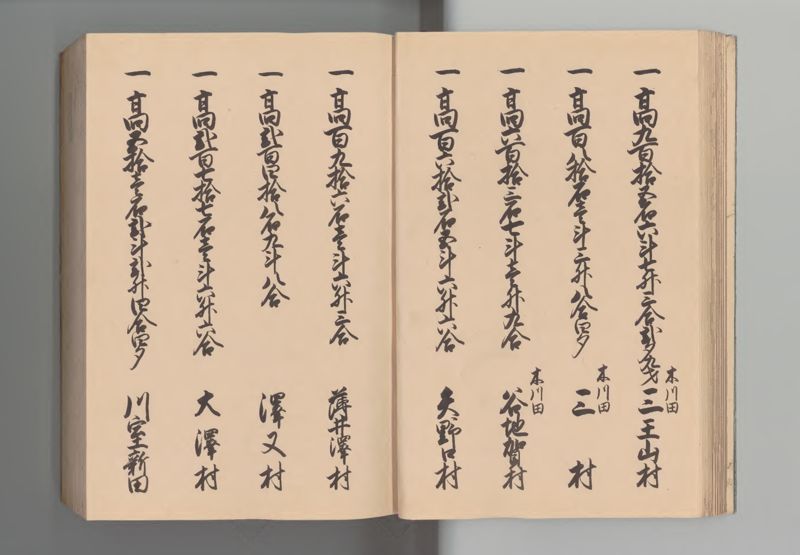 一 高九百拾五石六斗七升三合弐夕九才 木川田 三王山村
一 高百八拾石壱斗三升八合四夕 木川田 三村
一 高六百拾三石七斗壱升九合 木川田 谷地賀村
一 高百六拾弐石五斗六升六合 矢野口村
一 高百九拾六石壱斗六升三合 薄井澤村
一 高弐百四拾八石九斗八合 澤又村
一 高弐百七拾七石壱斗六升六合 大澤村
一 高五拾壱石弐斗弐升四合四夕 川室新田